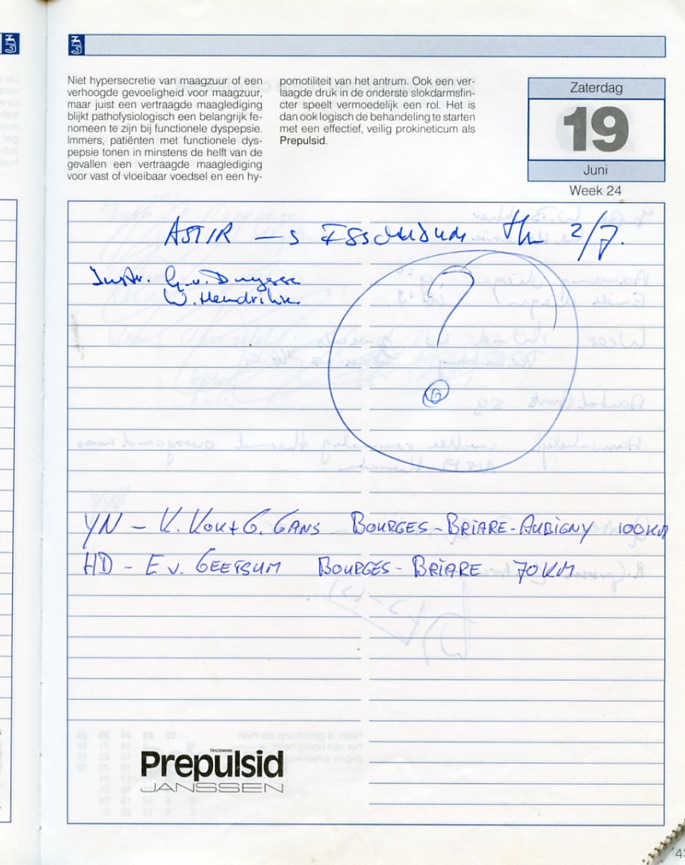 Niet hypersecretie van maagzuur of een
verhoogde gevoeligheid voor maagzuur,
maar juist een vertraagde maaglediging
blijkt pathofysiologisch een belangrijk fe-
nomeen te zijn bij functionele dyspepsie.
Immers, patiënten met functionele dys-
pepsie tonen in minstens de helft van de
gevallen een vertraagde maaglediging
voor vast of vloeibaar voedsel en een hy-
pomotiliteit van het antrum. Ook een ver-
laagde druk in de onderste slokdarmsfin-
cter speelt vermoedelijk een rol. Het is
dan ook logisch de behandeling te starten
met een effectief, veilig prokineticum als
Prepulsid.
Zaterdag
19
Juni
Week 24
ASTIR 2/7.
Instr. G. v.
W. Hendriks
?
YN - K. & G. GANS BOURGES-BRIARE-AUBIGNY 100KM
HD - E v. BOURGES-BRIARE 70KM
TRADEMARK
Prepulsid
JANSSEN